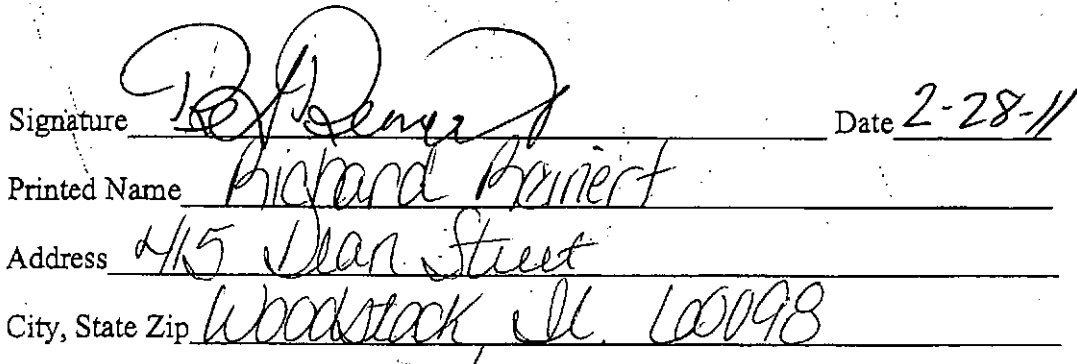 Signature Date 2-28-11
Printed Name Richard Reinert
Address 415 Dean Street
City, State Zip Woodstock, Il. 60098